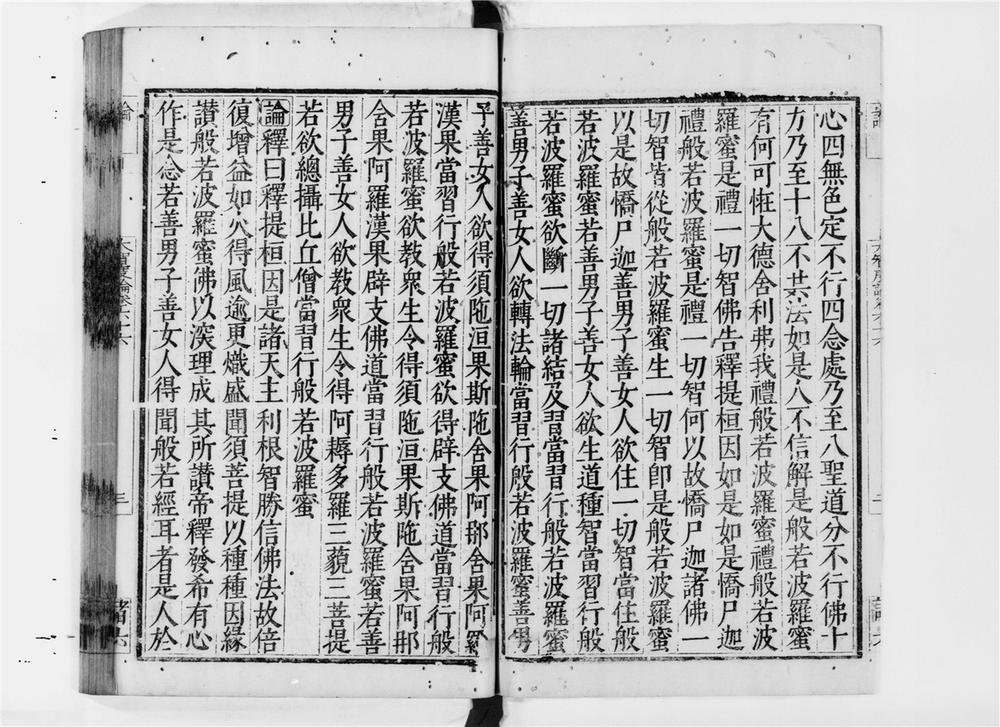 心四無色定不行四念處乃至八聖道分不行佛十
力乃至十八不共法如是人不信解是般若波羅蜜
有何可恠大德舍利弗我禮般若波羅蜜禮般若波
羅蜜是禮一切智佛告釋提桓因如是如是憍尸迦
禮般若波羅蜜是禮一切智何以故憍尸迦諸佛一
切智皆從般若波羅蜜生一切智卽是般若波羅蜜
以是故憍尸迦善男子善女人欲住一切智當住般
若波羅蜜若善男子善女人欲生道種智當習行般
若波羅蜜欲斷一切諸結及習當習行般若波羅蜜
善男子善女人欲轉法輪當習行般若波羅蜜善男
子善女人欲得須陁洹果斯陁舍果阿那舍果阿羅
漢果當習行般若波羅蜜欲得辟支佛道當習行般
若波羅蜜欲教衆生令得須陁洹果斯陁舍果阿那
舍果阿羅漢果辟支佛道當習行般若波羅蜜若善
男子善女人欲教衆生令得阿耨多羅三藐三菩提
若欲總攝比丘僧當習行般若波羅蜜
論釋曰釋提桓因是諸天主利根智勝信佛法故倍
復增益如火得風逾更熾盛聞須菩提以種種因緣
讃般若波羅蜜佛以深理成其所讃帝釋發希有心
作是念若善男子善女人得聞般若經耳者是人於
論
大智度論卷六十六
三